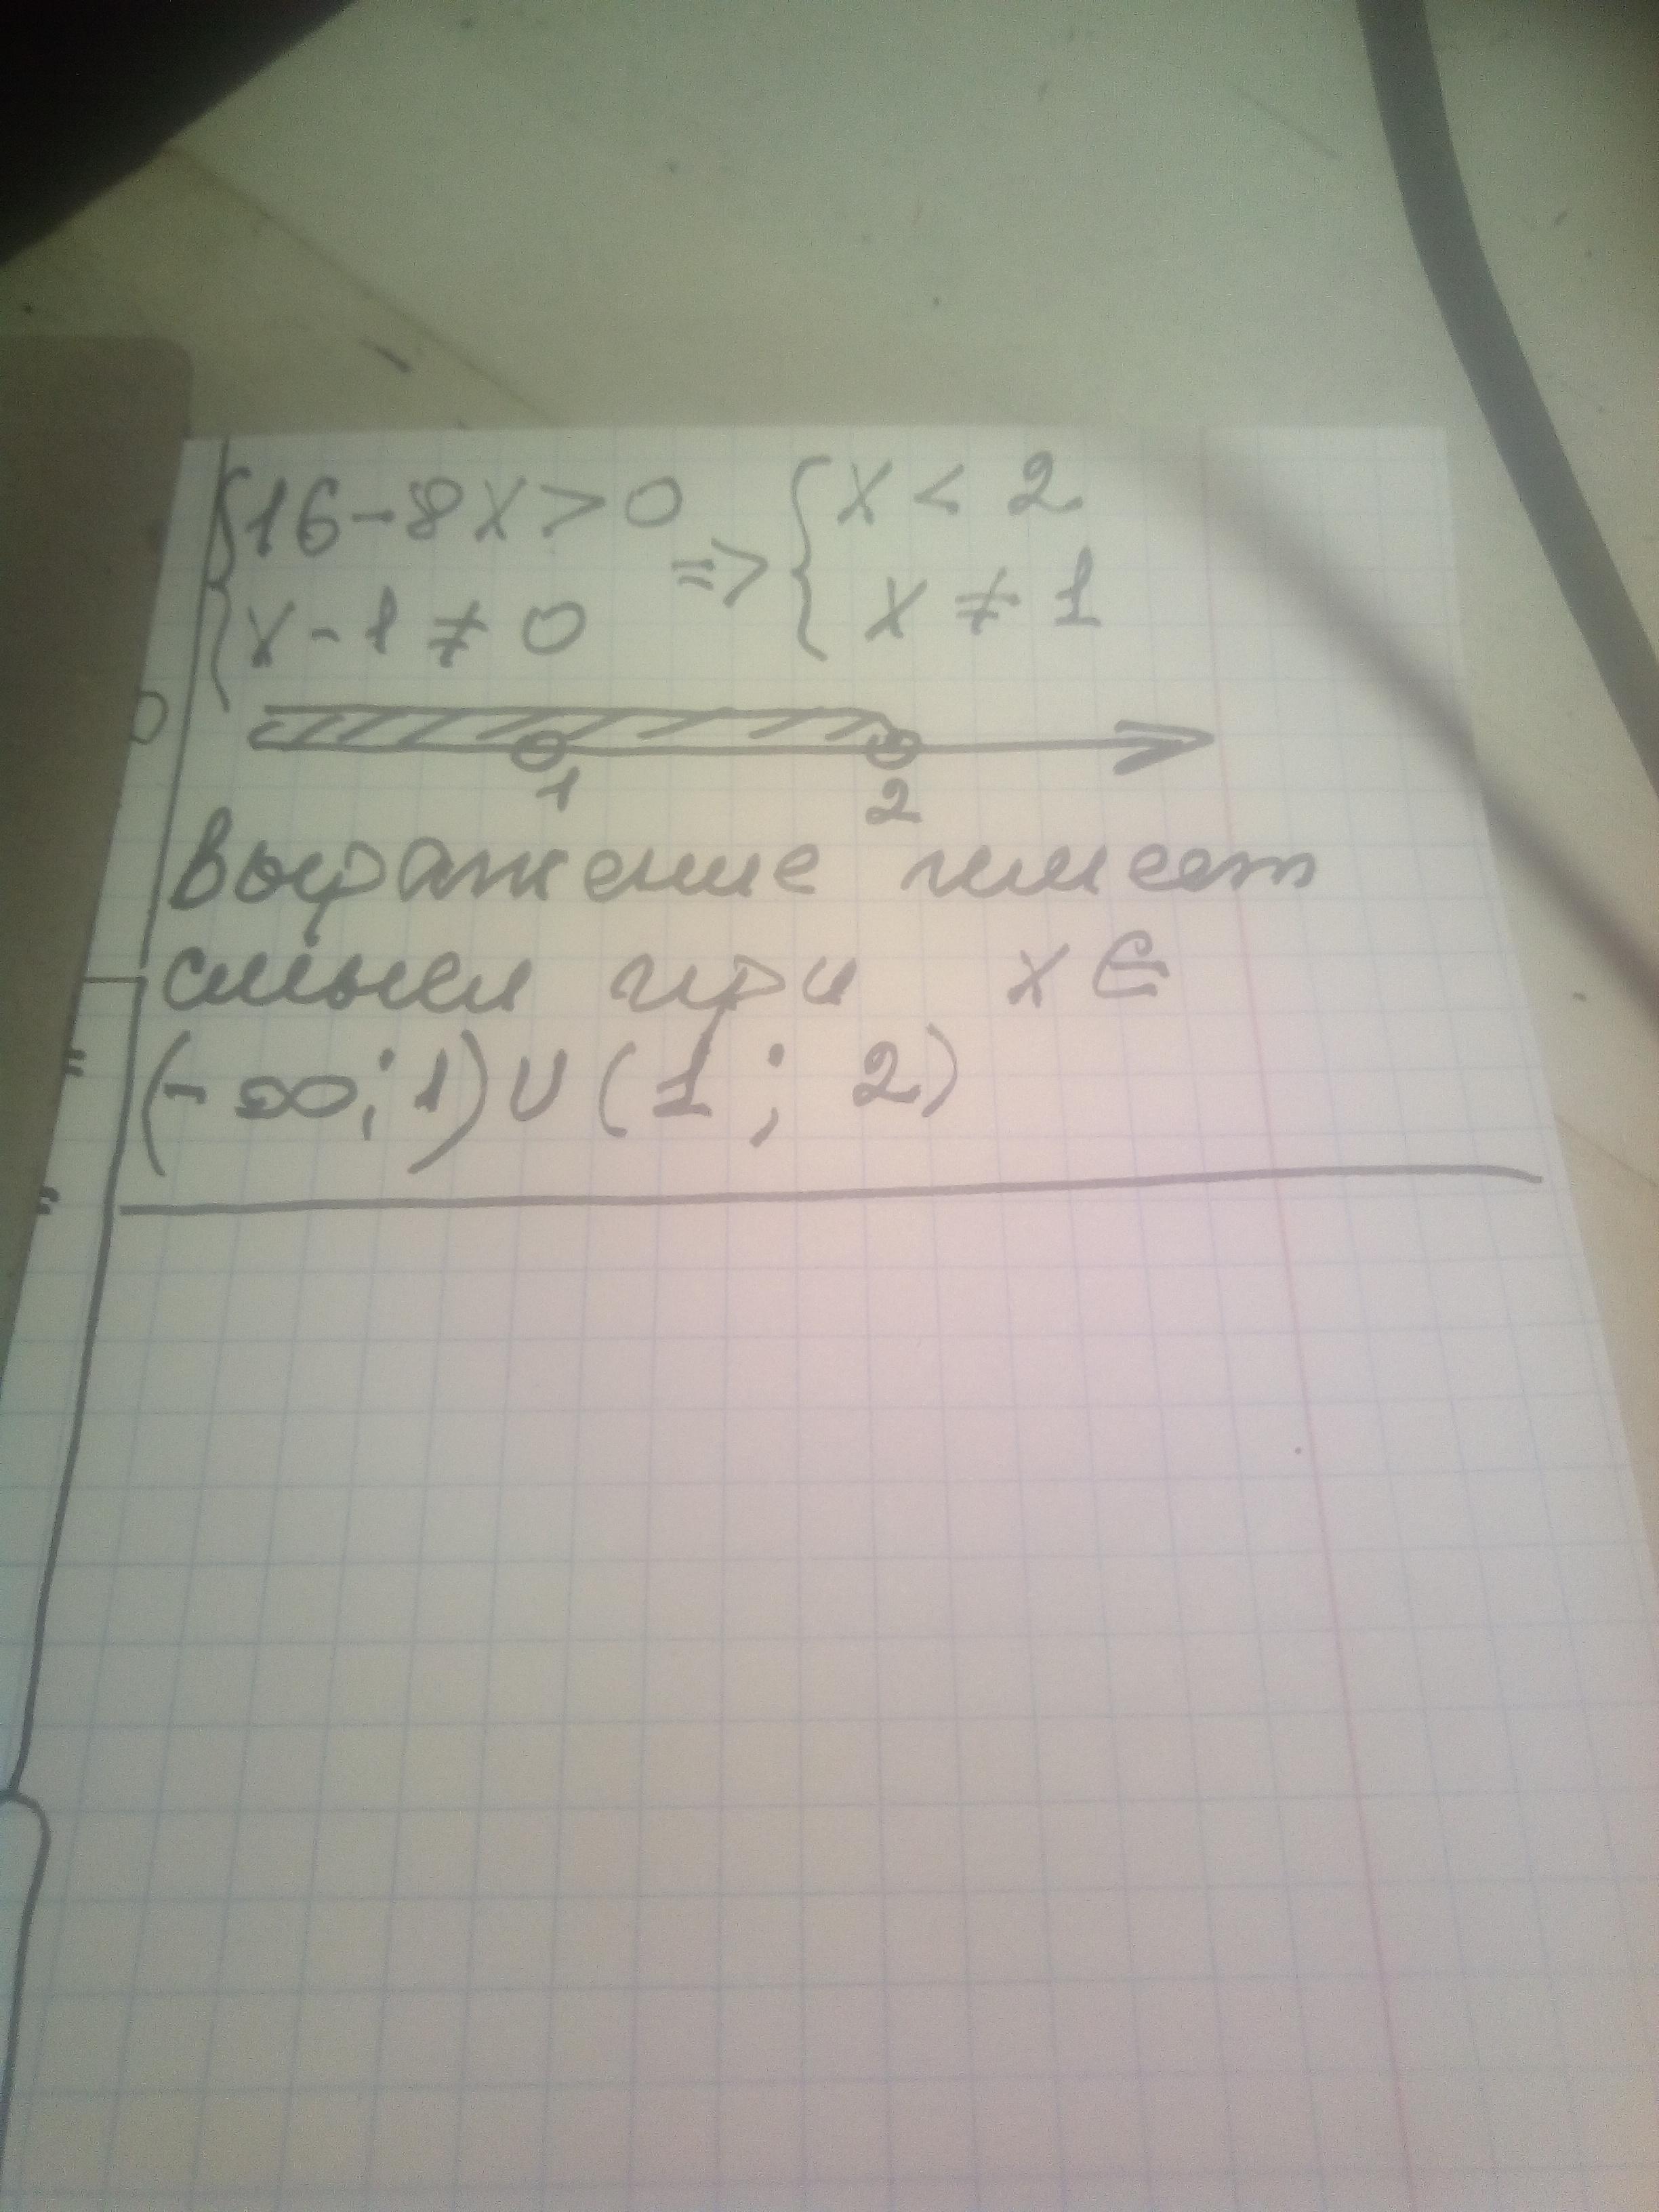 {16-8x>0 => {x < 2
{x-1≠0 {x ≠ 1
1 2
Выражение имеет
смысл при x ∈
(-∞; 1)∪(1; 2)